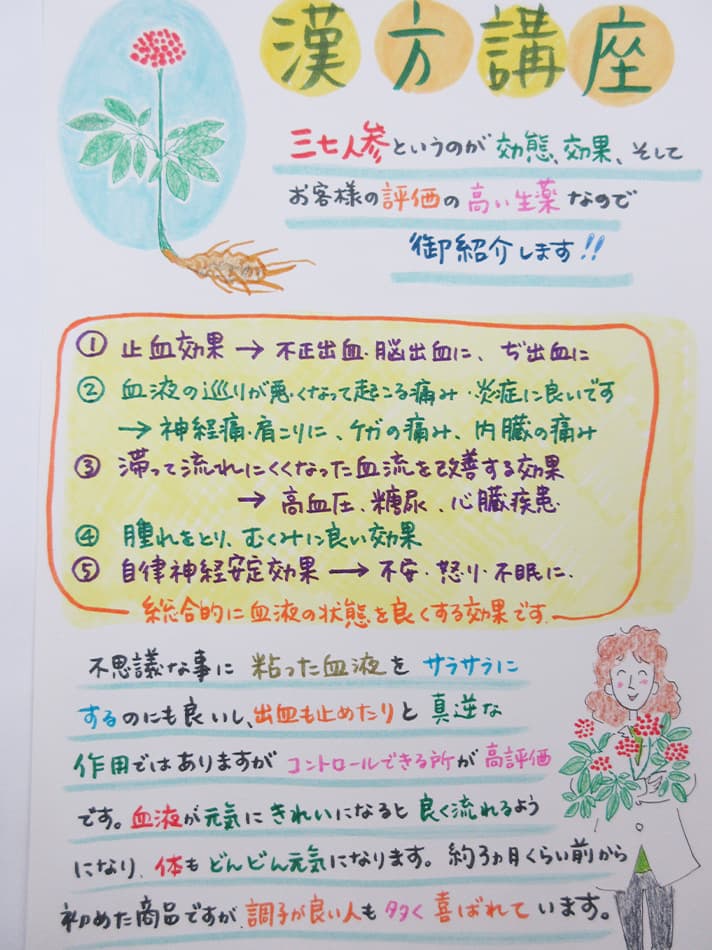 漢方講座
三七人参というのが効態、効果、そして
お客様の評価の高い生薬なので
御紹介します!!
① 止血効果 → 不正出血・脳出血に、ぢ出血に
② 血液の巡りが悪くなって起こる痛み・炎症に良いです
→ 神経痛・肩こりに、ケガの痛み、内臓の痛み
③ 滞って流れにくくなった血流を改善する効果
→ 高血圧、糖尿、心臓疾患
④ 腫れをとり、むくみに良い効果
⑤ 自律神経安定効果 → 不安・怒り・不眠に、
総合的に血液の状態を良くする効果です
不思議な事に 粘った血液を サラサラに
するのにも良いし、出血も止めたりと 真逆な
作用ではありますが コントロールできる所が 高評価
です。血液が元気に きれいになると 良く流れるよう
になり、体も どんどん元気になります。約3ヵ月くらい前から
初めた商品ですが、調子が良い人も 多く 喜ばれて います。